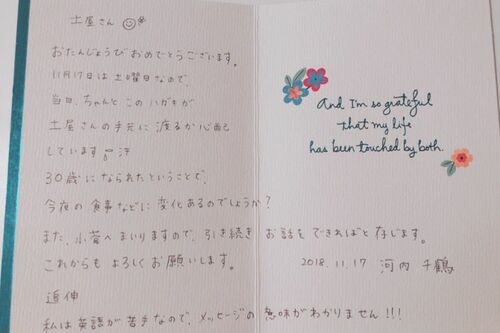 土屋さん
おたんじょうび おめでとうございます。
11月17日は土曜日なので、
当日、ちゃんとこのハガキが
土屋さんの手元に渡るか心配
しています 汗
30歳になられたということで、
今夜の食事などに変化あるのでしょうか?
また、小菅へまいりますので、引き続きお話をできればと存じます。
これからもよろしくお願いします。
2018.11.17 河内 千鶴
追伸
私は英語が苦手なので、メッセージの意味がわかりません!!!
And I'm so grateful
that my life
has been touched by both.